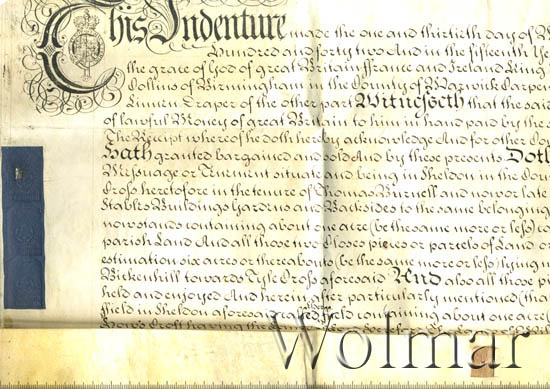 This Indenture made the one and thirtieth day of
hundred and forty two And in the fifteenth
the grace of God of great Britain ffrance and Ireland King
Collins of Birmingham in the County of Warwick
Linnen Draper of the other part Witnesseth that the said
of lawful Money of great Britain to him in hand paid by the
The Receipt whereof he doth hereby acknowledge And for other
Hath granted bargained and sold And by these presents Doth
Messuage or Tenement situate and being in Sheldon in the
Cross heretofore in the tenure of Thomas Burnell and now or late
Stables Buildings Gardens and Backsides to the same belonging
now stands containing about one acre (be the same more or less)
parish Land And all those two Closes pieces or parcels of Land
estimation six acres or thereabouts (be the same more or less) lying
Bickenhill towards Tyle Cross aforesaid And also all those
held and enjoyed And herein after particularly mentioned (that
ffield in Sheldon aforesaid called ffield containing about one acre
Wolmar